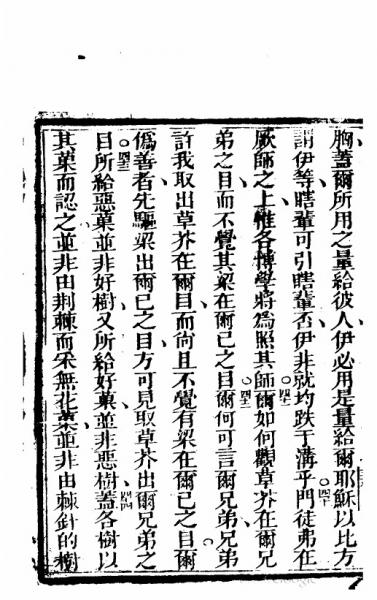 胸蓋爾所用之量給彼人伊必用是量給爾耶穌以比方
謂伊等瞎輩可引瞎輩否伊非就均跌于溝乎門徒弗在
厥師之上惟各博學將為照其師爾如何觀草芥在爾兄
弟之目而不覺其梁在爾已之目爾何可言爾兄弟兄弟
許我取出草芥在爾目而尚且不覺有梁在爾已之目爾
偽善者先驅梁出爾已之目方可見取草芥出爾兄弟之
目所給惡菓並非好樹又所給好菓並非惡樹蓋各樹以
其菓而認之並非由荆棘而釆無花菓並非由棘針的樹